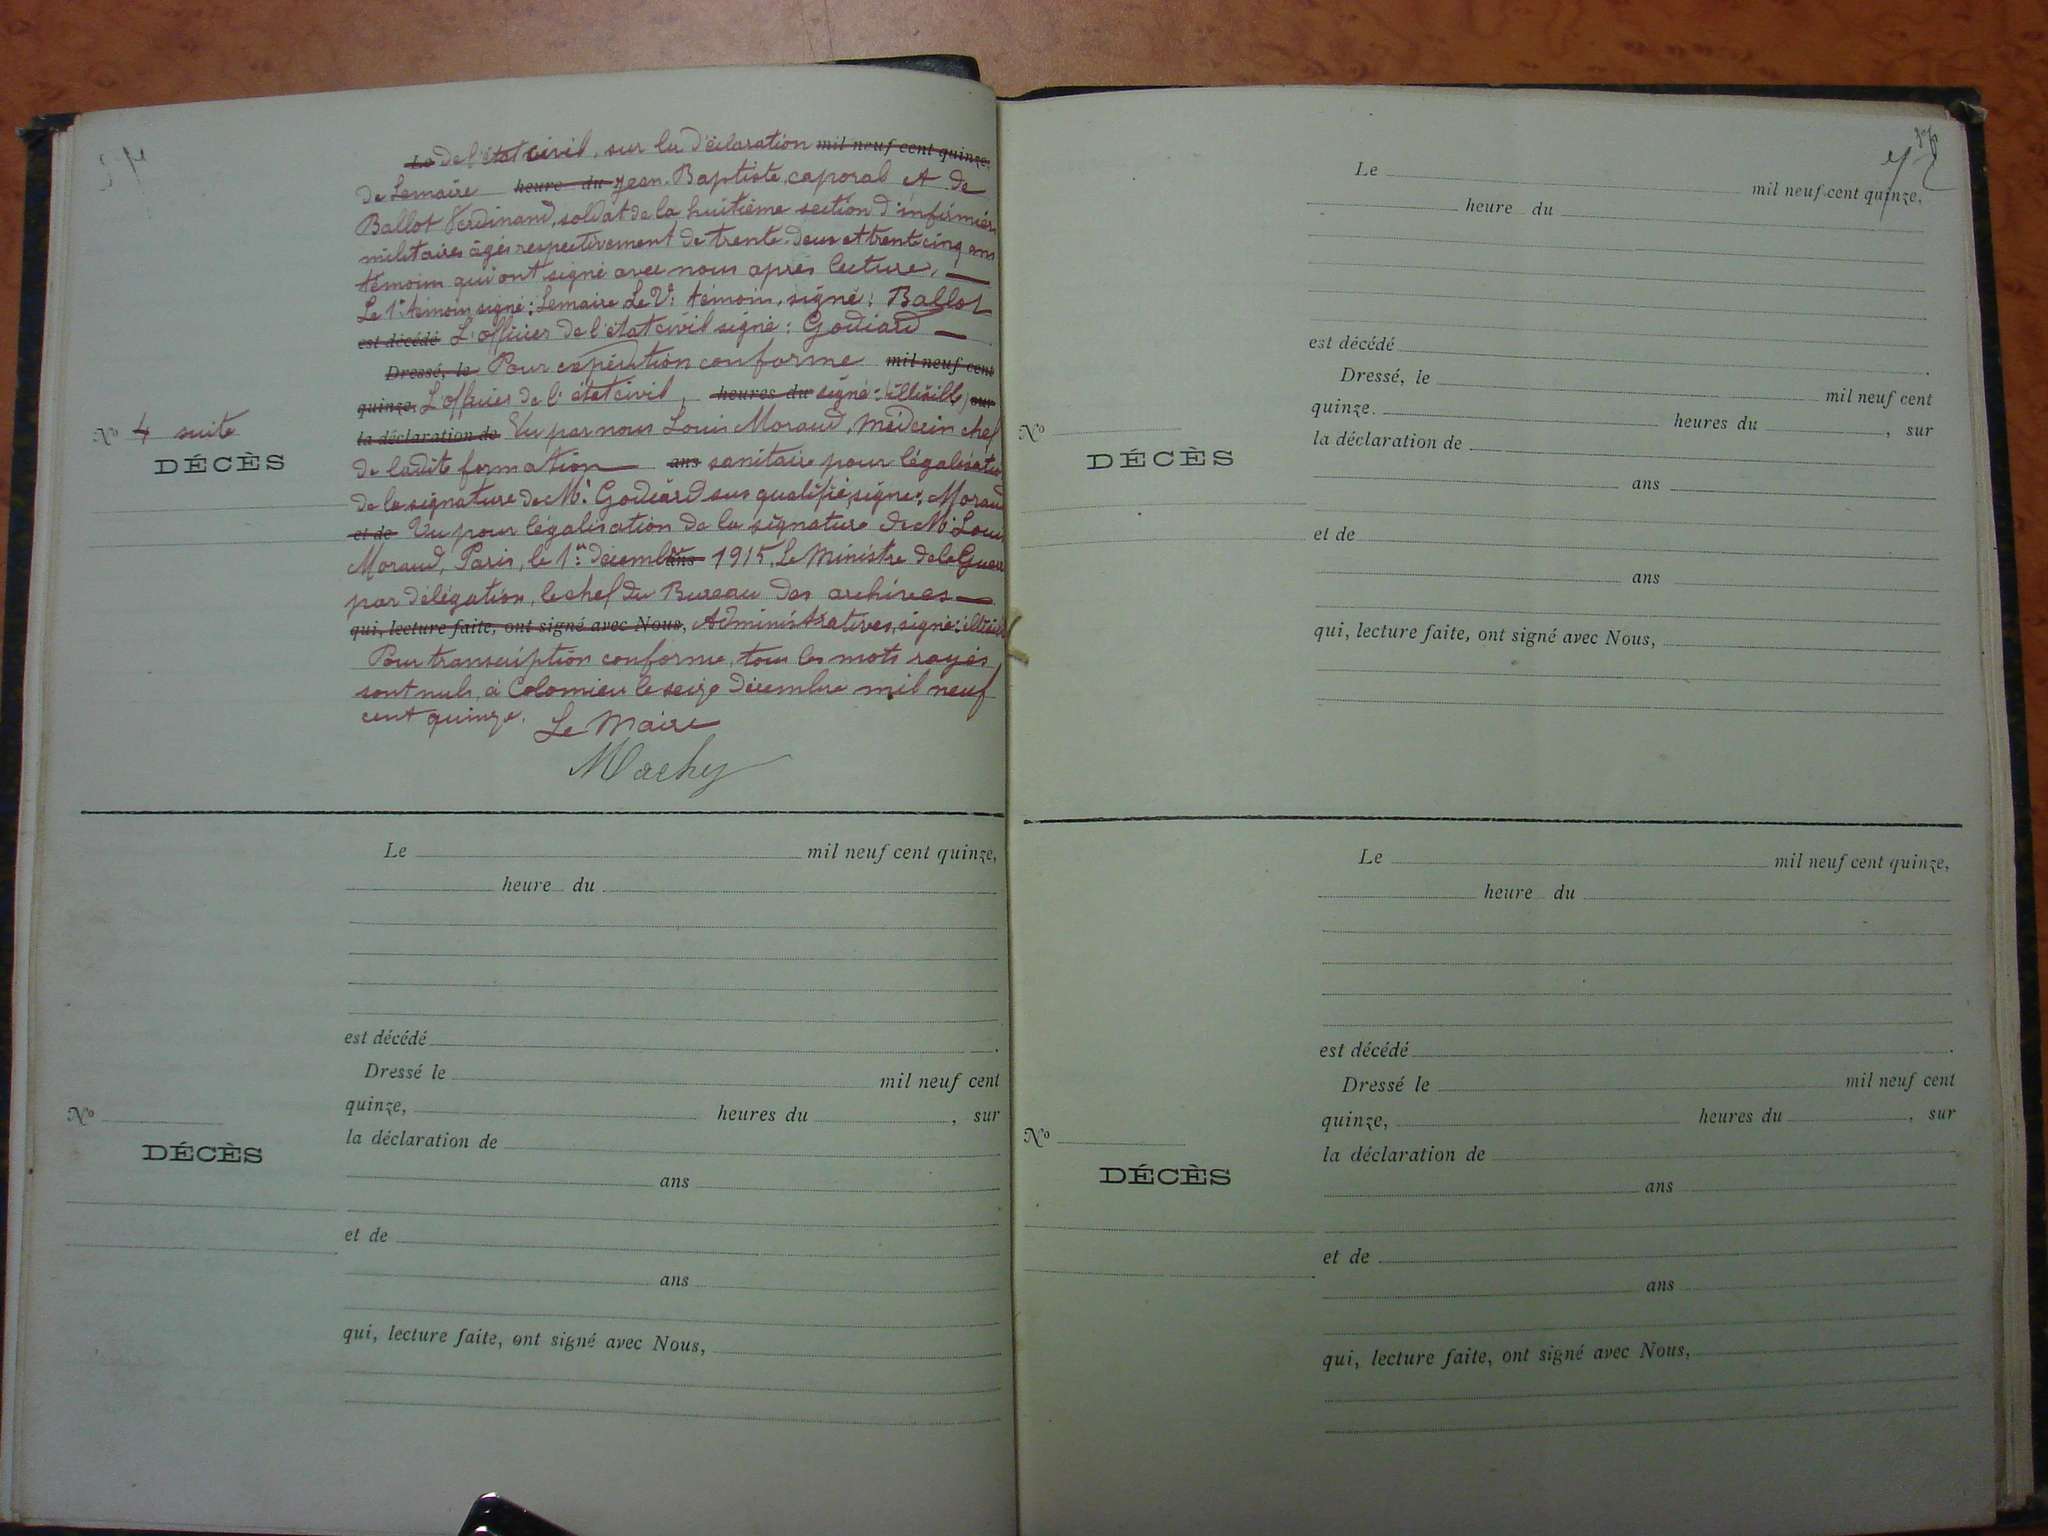 Le De l'état civil, sur la déclaration mil neuf cent quinze,
de Lemaire heure du Jean-Baptiste, caporal et de
Ballot Ferdinand, soldat de la huitième section d'infirmiers
militaires âgés respectivement de trente-deux et trente cinq ans
témoins qui ont signé avec nous après lecture,
Le 1er témoin signé: Lemaire Le témoin, signé: Ballot
est décédé L'officier de l'état civil signé: Godiard
Dressé, le Pour expédition conforme mil neuf cent
quinze. L'officier de l'état civil, heures du signé: (illisible) sur
la déclaration de Vu par nous Louis Moraud, médecin chef
N° 4 suite
DÉCÈS
de ladite formation ans sanitaire pour légalisation
de la signature de Mr Godiard sus qualifié, signé: Moraud
et de Vu pour légalisation de la signature de Mr Louis
Moraud, Paris, le 1er décembre ans 1915, Le Ministre de la Guerre
par délégation, le chef du Bureau des archives
qui, lecture faite, ont signé avec Nous, Administratives, signé: illisible
Pour transcription conforme, tous les mots rayés
sont nuls, à Colomieu le seize Décembre mil neuf
cent quinze. Le Maire
Machy
Le mil neuf cent quinze,
heure du
est décédé
Dressé le mil neuf cent
quinze, heures du , sur
N°
DÉCÈS
la déclaration de
ans
et de
ans
qui, lecture faite, ont signé avec Nous,
Le mil neuf cent quinze,
heure du
est décédé
Dressé, le mil neuf cent
quinze. heures du , sur
N°
DÉCÈS
la déclaration de
ans
et de
ans
qui, lecture faite, ont signé avec Nous,
Le mil neuf cent quinze,
heure du
est décédé
Dressé le mil neuf cent
quinze, heures du , sur
N°
DÉCÈS
la déclaration de
ans
et de
ans
qui, lecture faite, ont signé avec Nous,